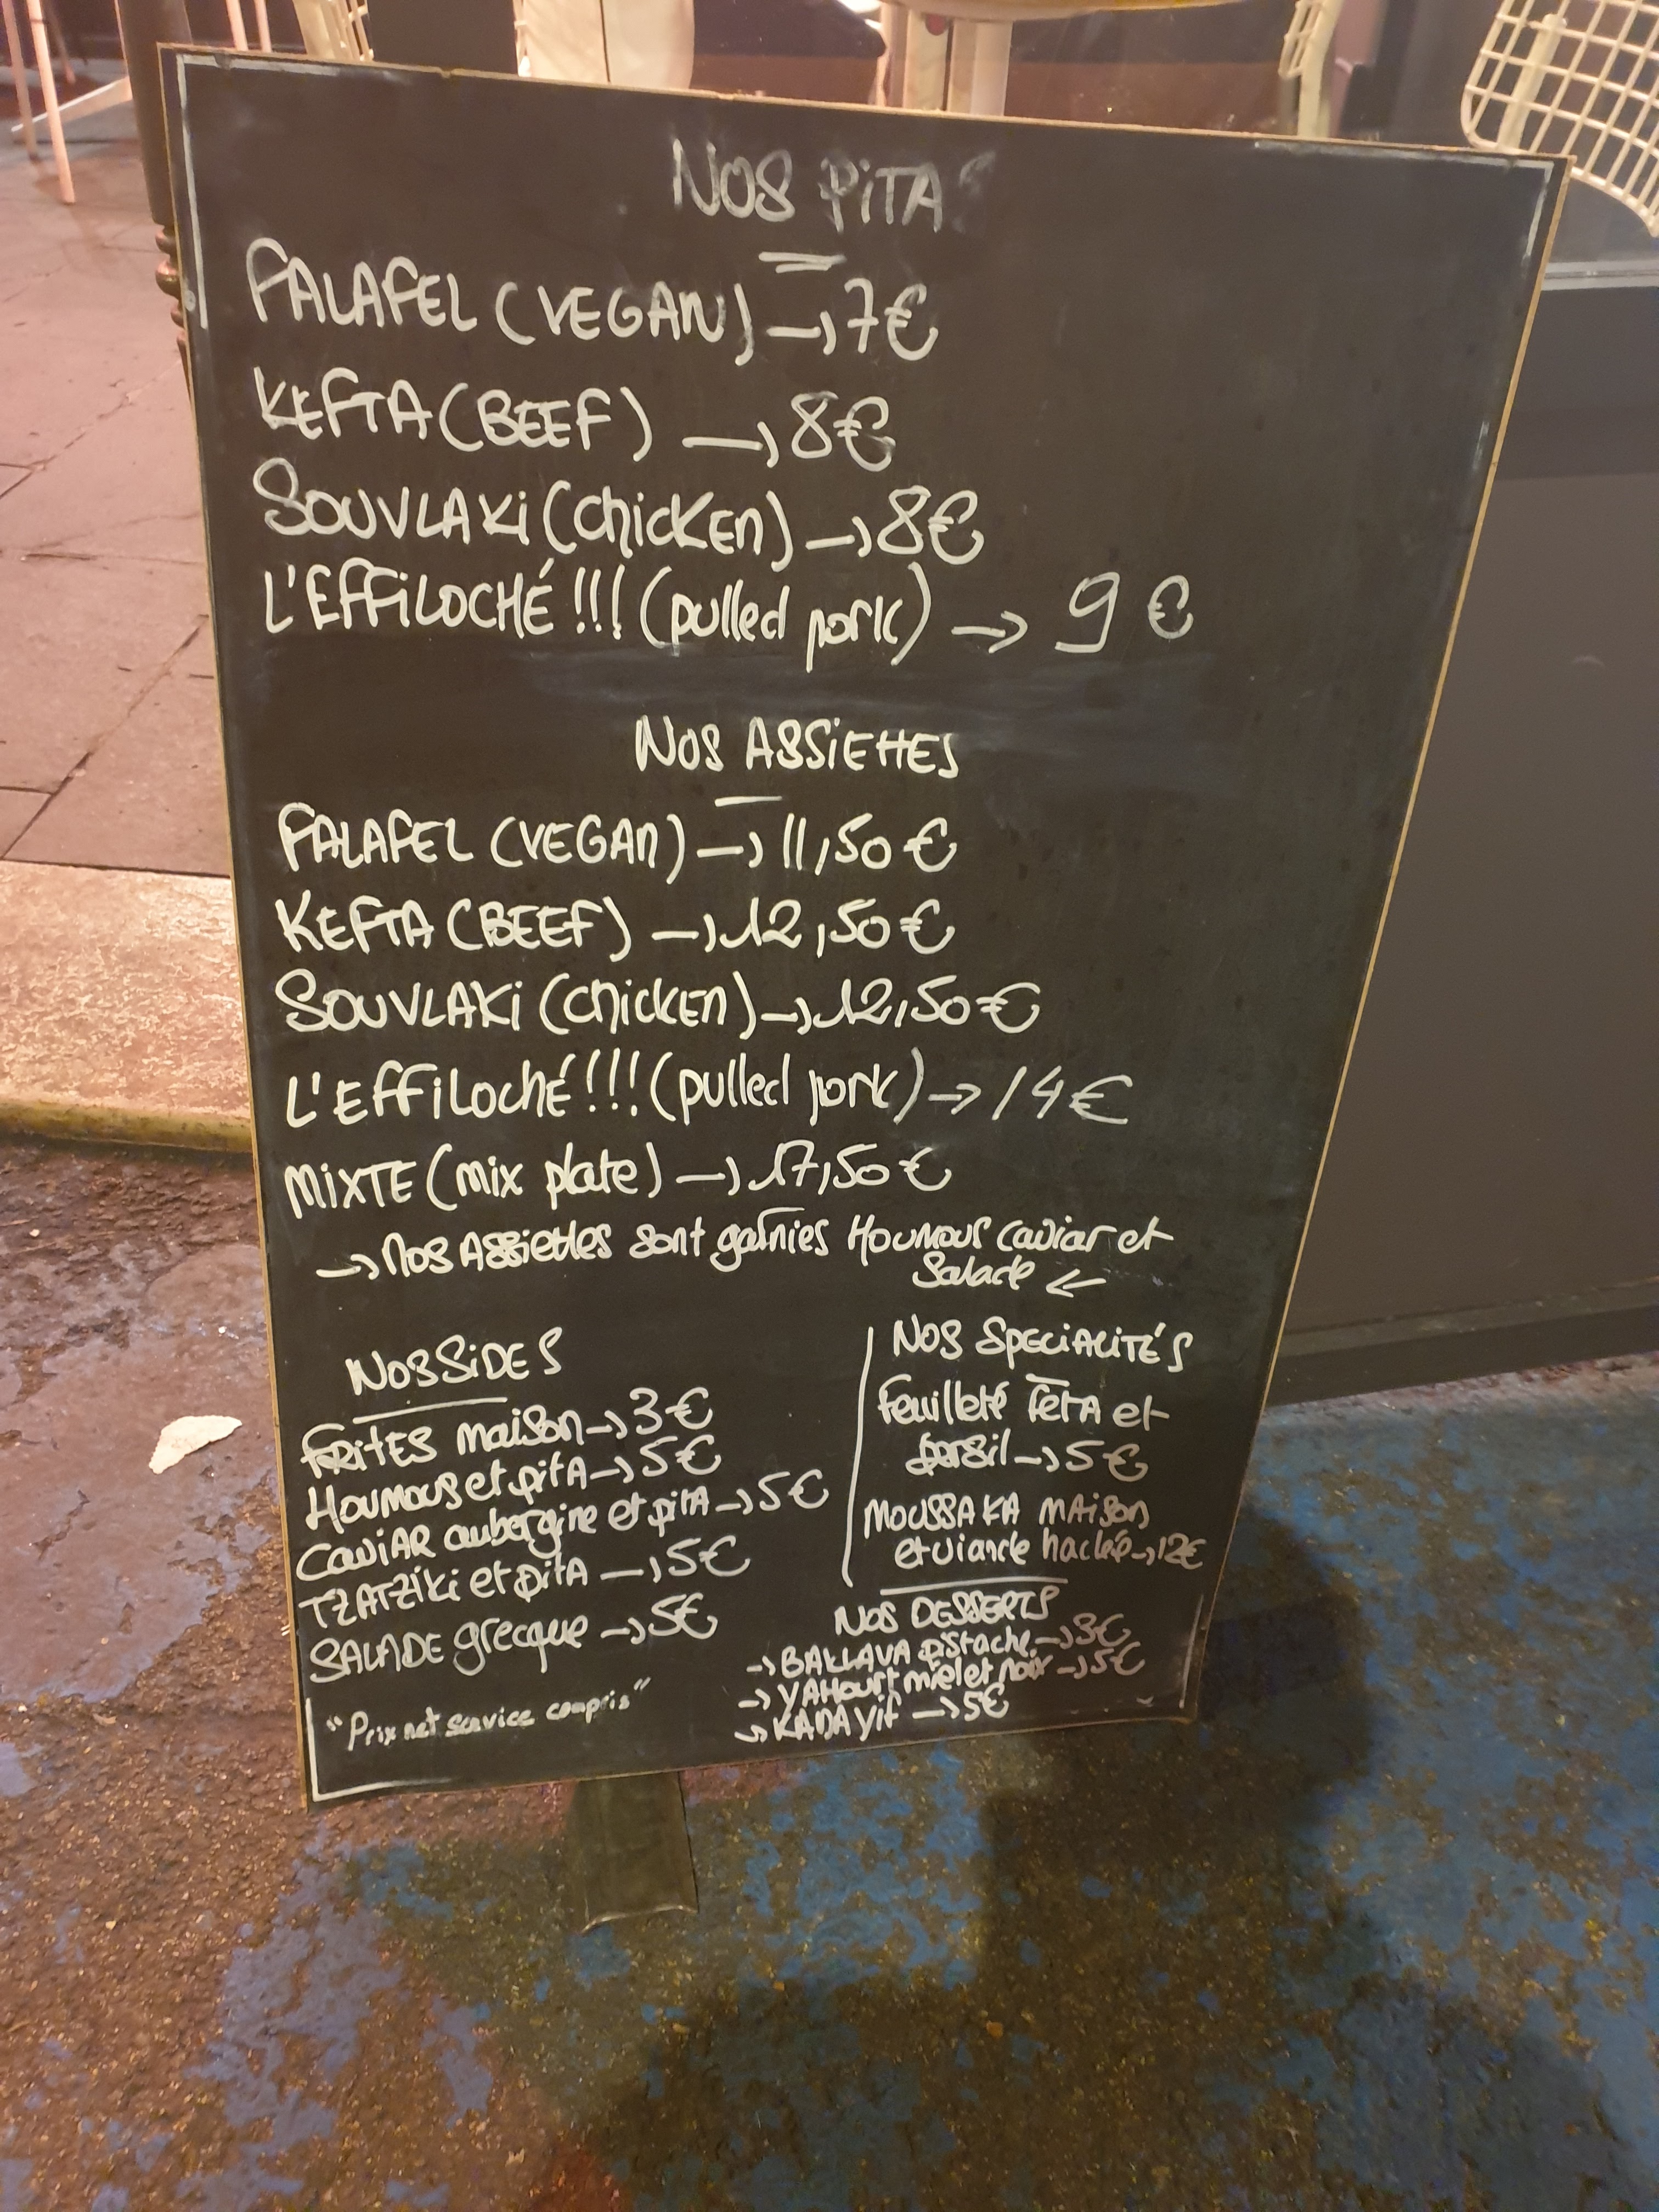 NOS PITAS
FALAFEL (VEGAN) → 7€
KEFTA (BEEF) → 8€
SOUVLAKI (chicken) → 8€
L'EFFILOCHÉ !!! (pulled pork) → 9 €
NOS ASSIETTES
FALAFEL (VEGAN) → 11,50 €
KEFTA (BEEF) → 12,50 €
SOUVLAKI (chicken) → 12,50 €
L'EFFILOCHÉ !!! (pulled pork) → 14 €
MIXTE (mix plate) → 17,50 €
→ Nos Assiettes sont garnies Houmous caviar et
Salade ←
NOS SIDES
FRITES maison → 3 €
Houmous et pitA → 5 €
CAVIAR aubergine et pitA → 5 €
TZATZIKI et pitA → 5 €
SALADE grecque → 5€
"Prix net service compris"
NOS SPECIALITÉS
Feuilleté FETA et
persil → 5 €
MOUSSAKA MAISON
et viande hachée → 12€
NOS DESSERTS
→ BAKLAVA pistache → 3€
→ YAHOURT miel et noix → 5€
→ KADAYIF → 5€